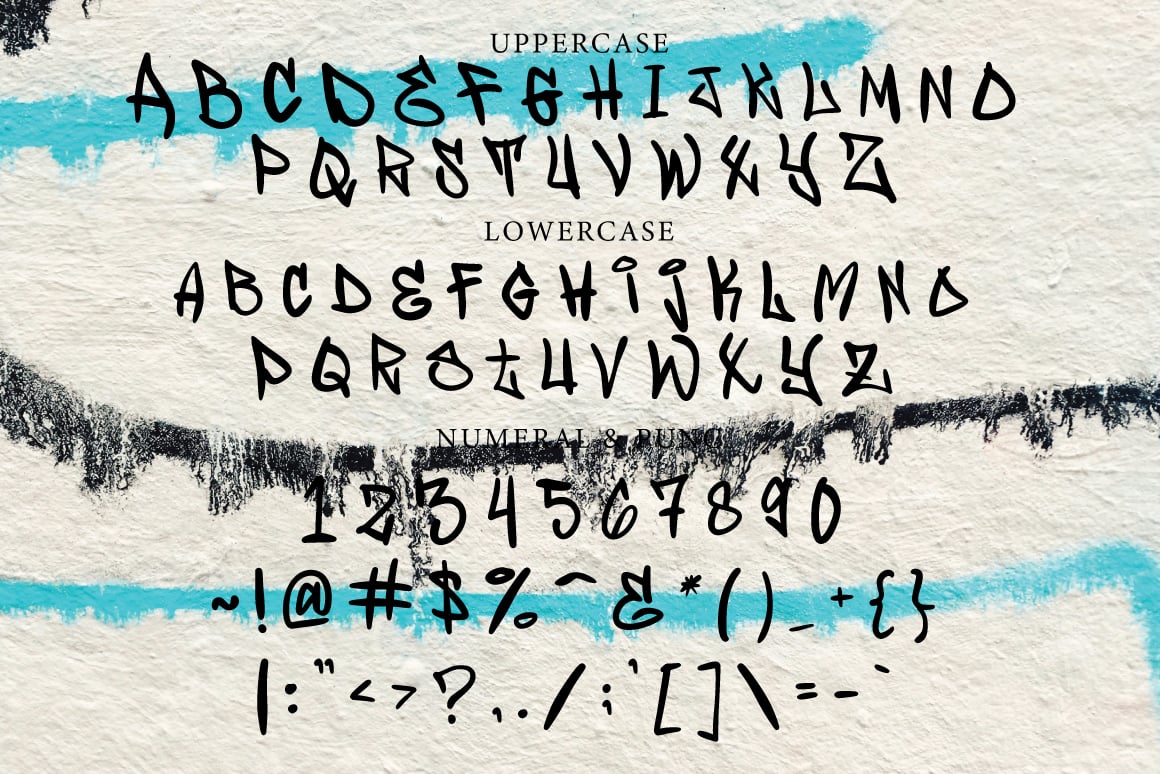 UPPERCASE
A B C D E F G H I J K L M N O
P Q R S T U V W X Y Z
LOWERCASE
A B C D E F G H i j K L M N O
P Q R S t U V W X Y Z
NUMERAL & PUNC
1 2 3 4 5 6 7 8 9 0
~ ! @ # $ % ^ & * ( ) _ + { }
| : " < > ? , . / ; ' [ ] \ = - `